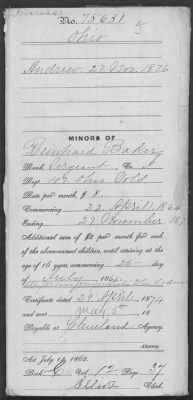 Increase
No. 75631
Ohio
Andrew 27 Nov. 1876
MINORS OF
Reinhard Baker
Rank, Sergeant Co.
Regt. 107 Ohio Vols
Rate per month, $ 8
Commencing 22 April 1864
Ending 27 November 187
Additional sum of $2 per month for each
of the abovenamed children, until arriving at the
age of 16 years, commencing 25 day
of July 1866
Certificate dated 29 April 1874
and sent May 5 18
Payable at Cleveland Agency.
Attorney.
Act July 14, 1862.
Book C Vol. 12 Page 37
Clerk.